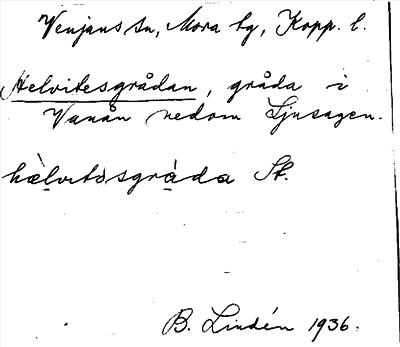 Venjans sn, Mora tg, Kopp. l.
Helvitesgrådan, gråda i
Vanån nedom Ljusagen.
hèlvitosgràda St.
B. Lindén 1936.